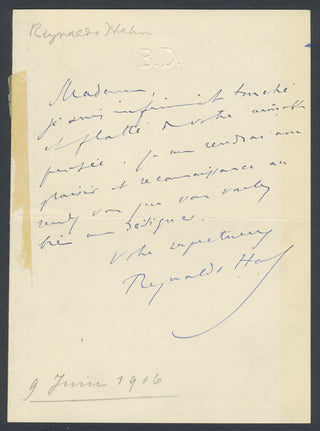 Reynaldo Hahn
B.D.
Madame,
je suis infiniment touché
et flatté de votre aimable
pensée. Je me rendrai avec
plaisir et reconnaissance au
rendez vous que vous voulez
bien me désigner.
Votre respectueux
Reynaldo Hahn
9 Juin 1906